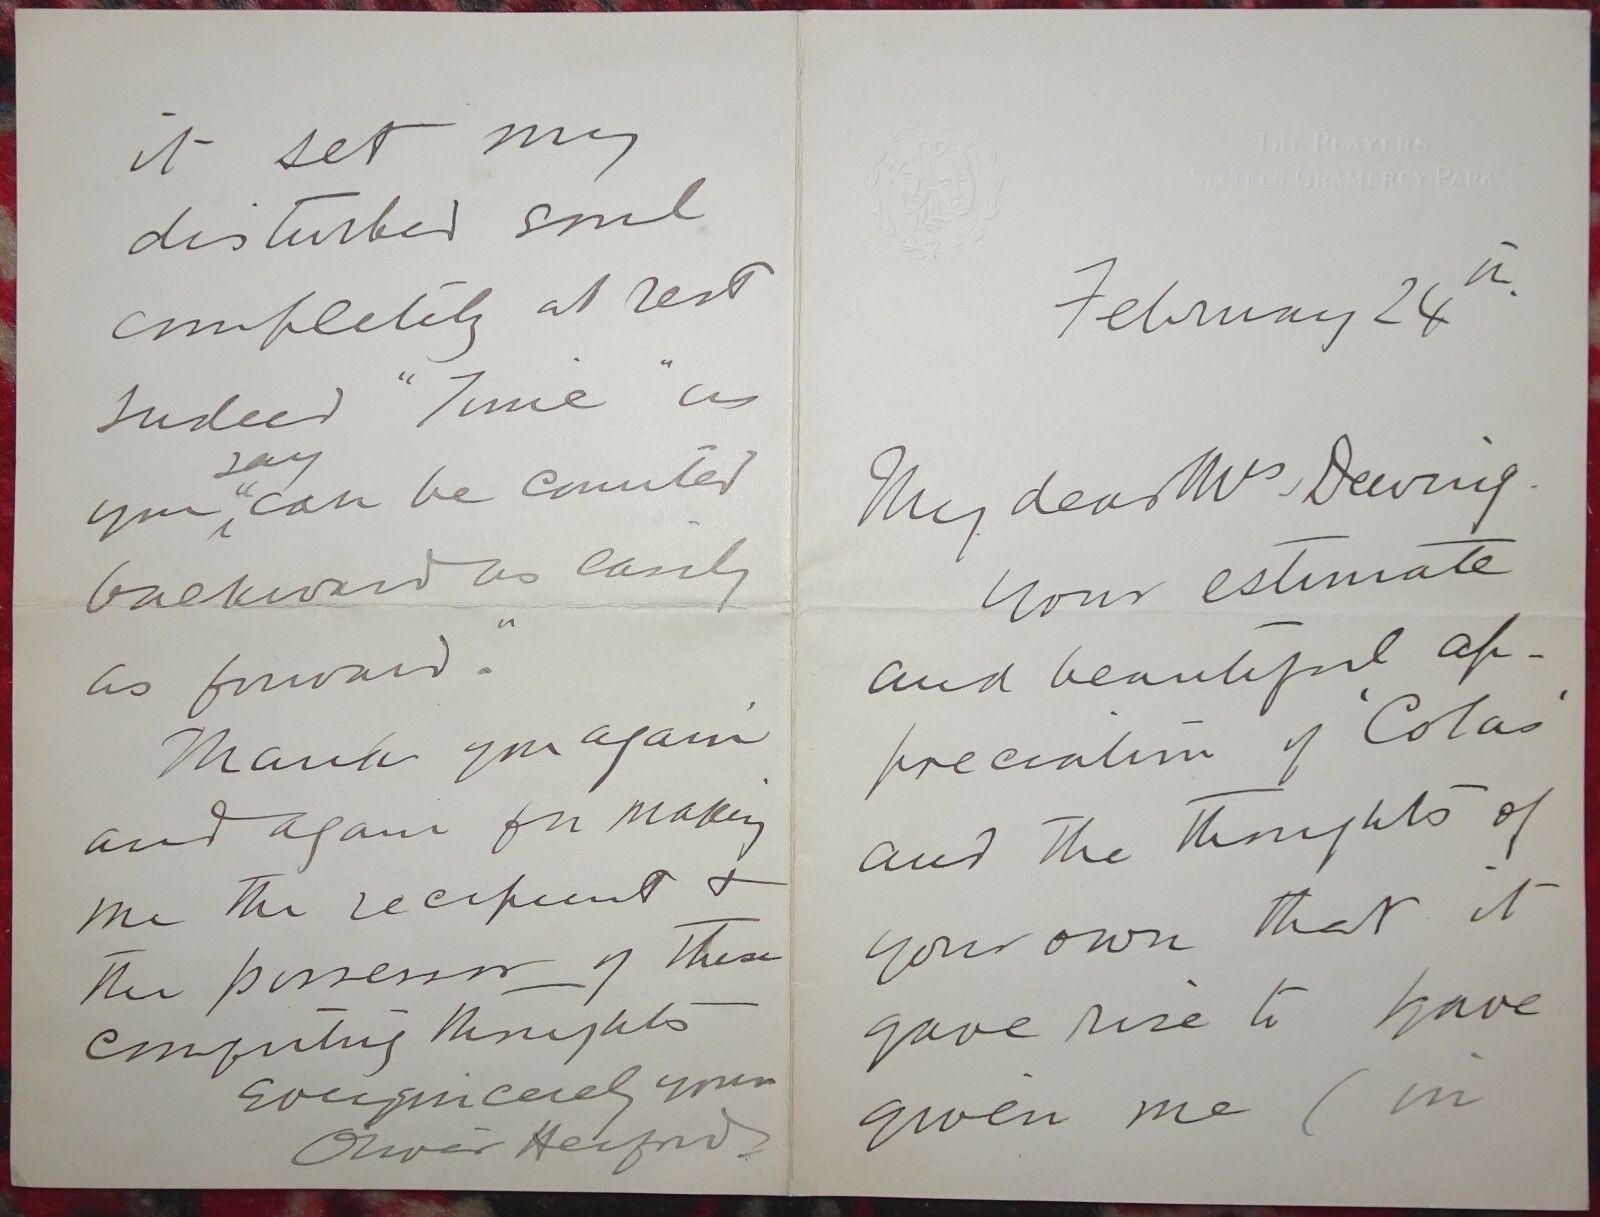 The Players
Sixteen Gramercy Park
February 24th.
My dear Mrs Dewing.
your estimate
and beautiful ap-
preciation of 'Colas'
and the thoughts of
your own that it
gave rise to have
given me (in
it set my
disturbed soul
completely at rest
Indeed "Time" as
you say "can be counted
backward as easily
as forward."
Thank you again
and again for making
me the recipient &
the possessor of these
comforting thoughts
Ever sincerely yours
Oliver Herford